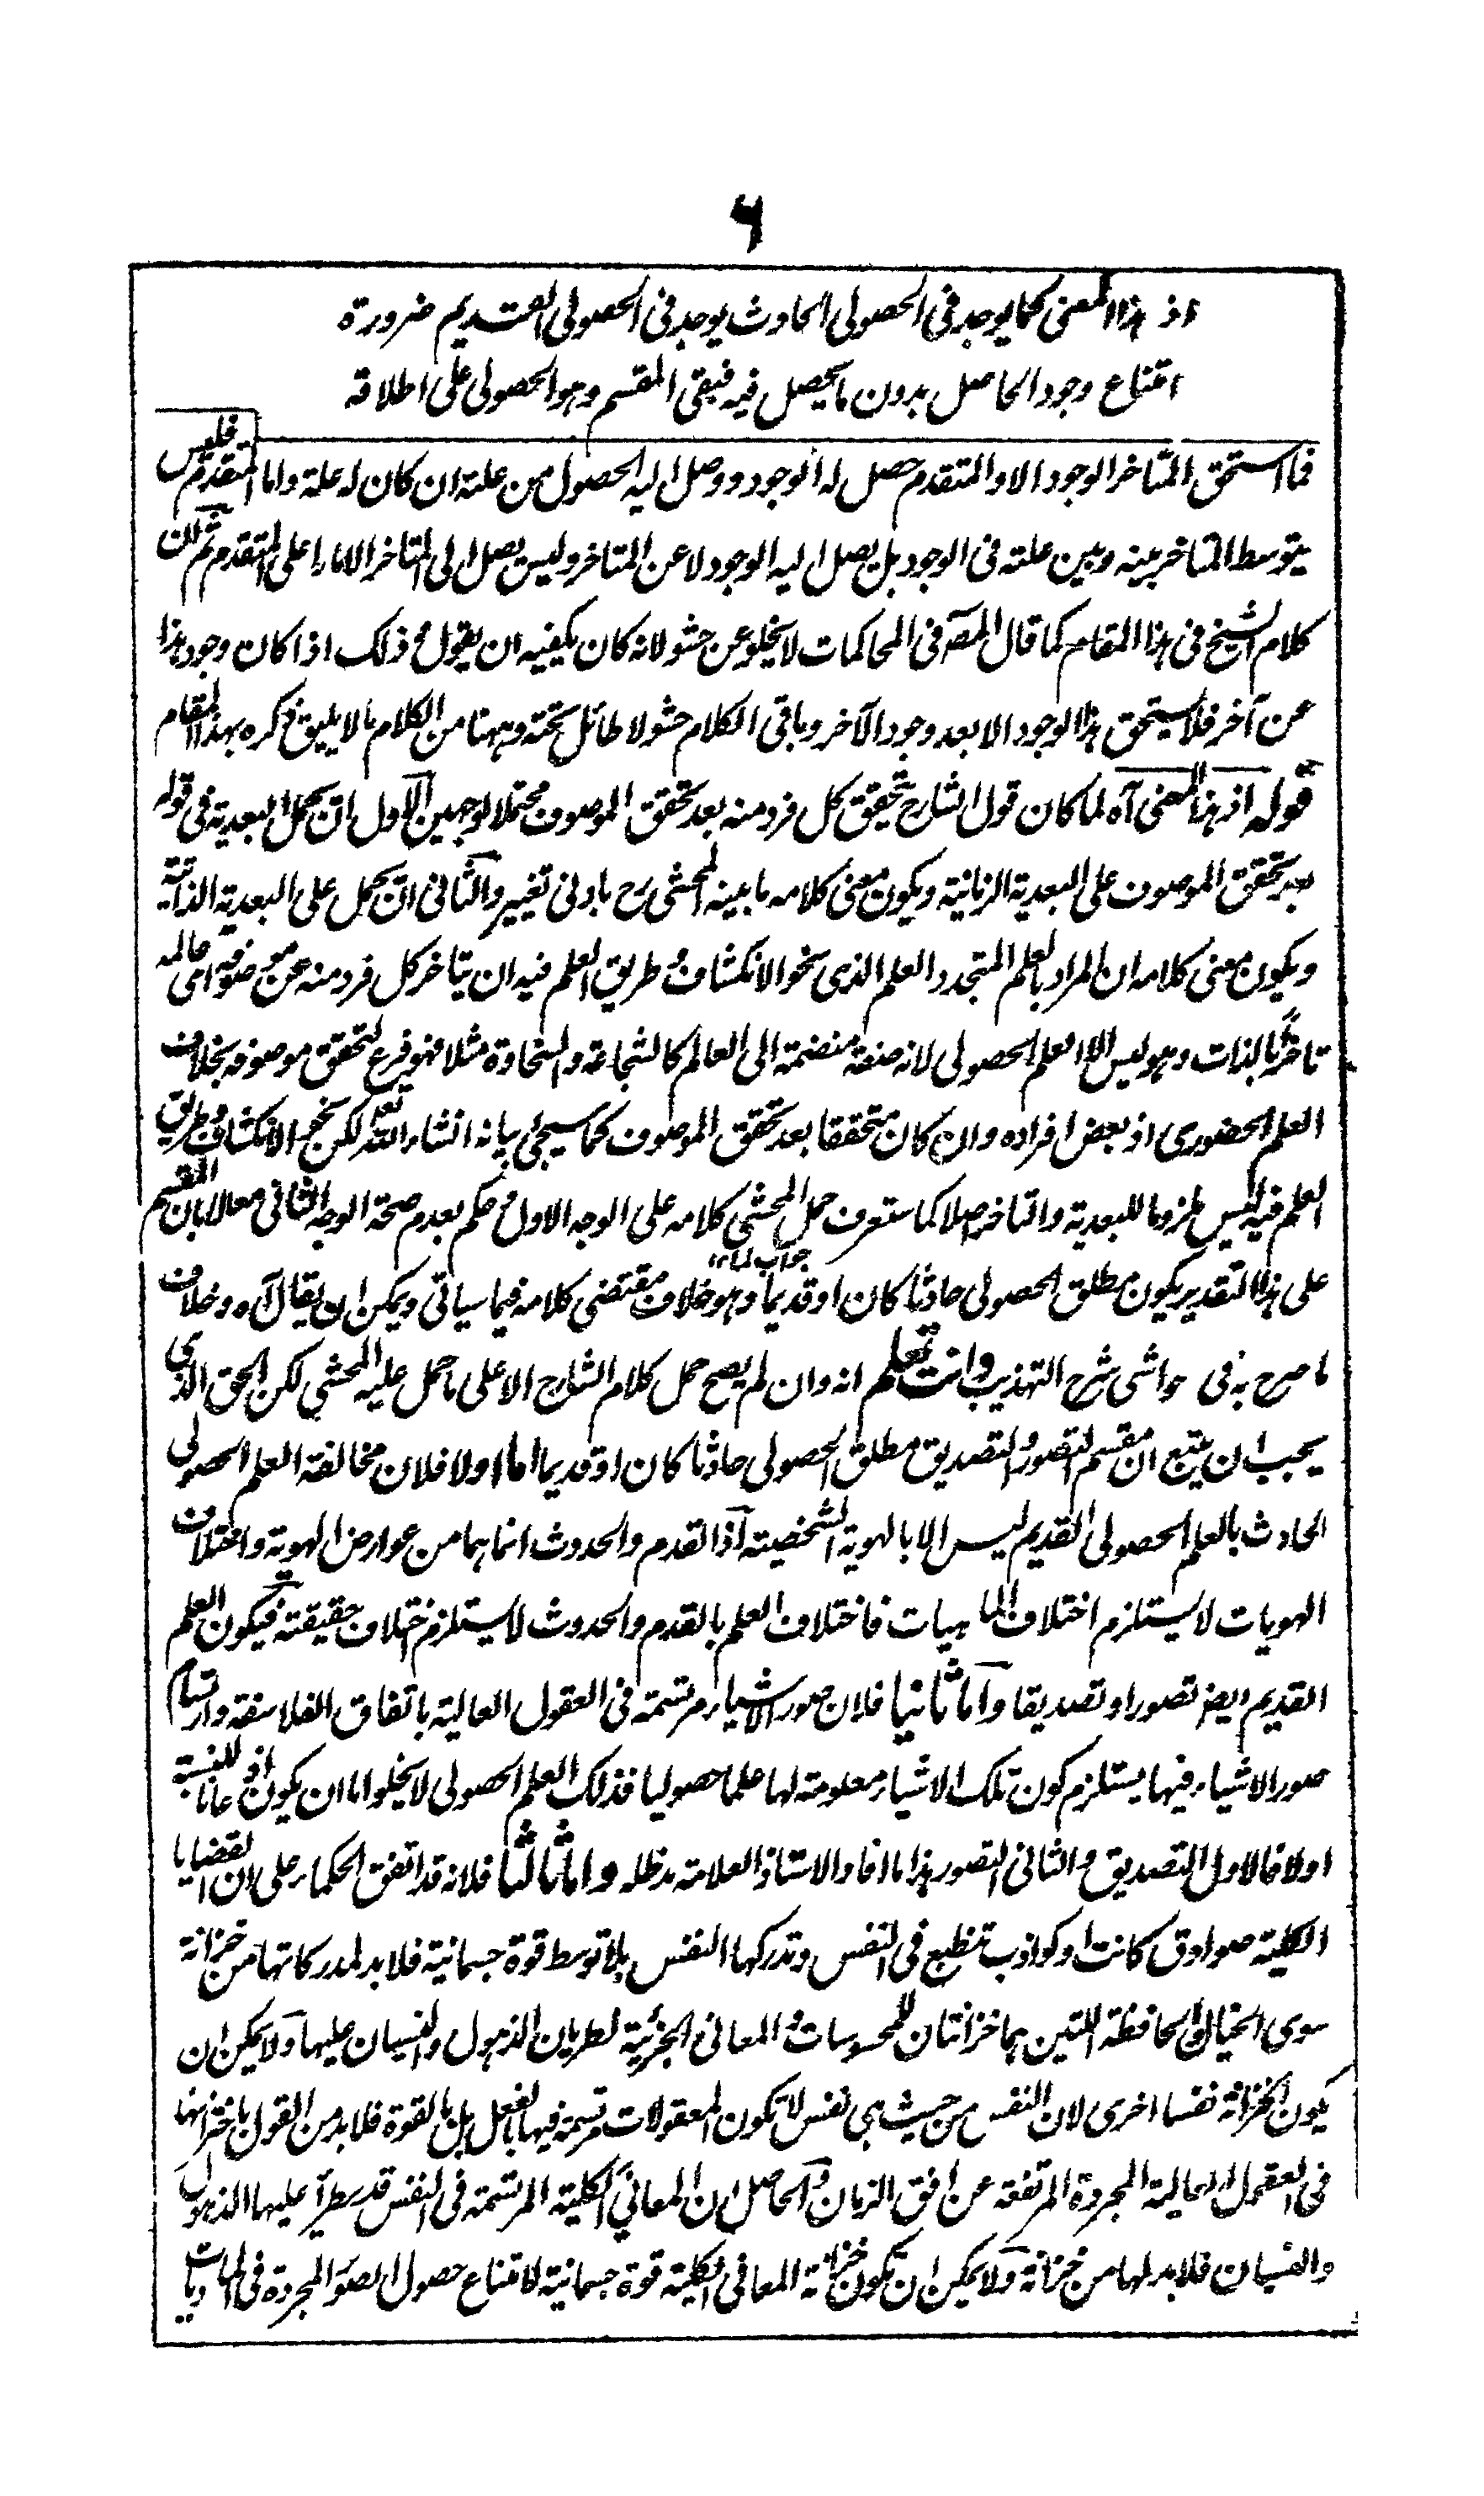 ٦
اذ هذا المعنى كما يوجد فى الحصولى الحادث يوجد فى الحصولى القديم ضرورة
امتناع وجود الحاصل بدون ما يحصل فيه فبقى المقسم وهو الحصولى على اطلاقه
فما استحق المتاخر الوجود الا والمتقدم حصل له الوجود ووصل اليه الحصول من علته ان كان له علة واما المتقدم فليس
يتوسط المتاخر بينه وبين علته فى الوجود بل يصل اليه الوجود لا عن المتاخر وليس يصل الى المتاخر الا مارا على المتقدم ثم ان
كلام الشيخ فى هذا المقام كما قال المصـ فى المحاكمات لا يخلو عن حشو لانه كان يكفيه ان يقول وذلك اذا كان وجود هذا
عن آخر فلا يستحق هذا الوجود الا بعد وجود الآخر وباقى الكلام حشو لا طائل تحته وههنا من الكلام ما لا يليق ذكره بهذا المقام
قوله اذ هذا المعنى آه لما كان قول الشارح تحقق كل فرد منه بعد تحقق الموصوف محتملا لوجهين الاول ان يحمل البعدية فى قوله
بعد تحقق الموصوف على البعدية الزمانية ويكون معنى كلامه ما بينه المحشى رح بادنى تغيير والثانى ان يحمل على البعدية الذاتية
ويكون معنى كلامه ان المراد بالعلم المتجدد العلم الذى نحو الانكشاف وطريق العلم فيه ان يتاخر كل فرد منه عن موصوفه اى عالمه
تاخرا بالذات وهو ليس الا العلم الحصولى لانه صفة منضمة الى العالم كالشجاعة والسخاوة مثلا فهو فرع لتحقق موصوفه بخلاف
العلم الحضورى اذ بعض افراده وان كان متحققا بعد تحقق الموصوف كما سيجئ بيانه انشاء الله تعالى لكن نحو الانكشاف وطريق
العلم فيه ليس ملزوما للبعدية والتاخر اصلا كما ستعرف حمل المحشى كلامه على الوجه الاول وحكم بعدم صحة الوجه الثانى معللا بان المقسم
جواب لما ١٢
على هذا التقدير يكون مطلق الحصولى حادثا كان او قديما وهو خلاف مقتضى كلامه فيما سياتى ويمكن ان يقال آه وخلاف
ما صرح به فى حواشى شرح التهذيب وانت تعلم انه وان لم يصح حمل كلام الشارح الا على ما حمل عليه المحشى لكن الحق الذى
يجب ان يتبع ان مقسم التصور والتصديق مطلق الحصولى حادثا كان او قديما اما اولا فلان مخالفة العلم الحصولى
الحادث بالعلم الحصولى القديم ليس الا بالهوية الشخصية اذ القدم والحدوث انما هما من عوارض الهوية واختلاف
الهويات لا يستلزم اختلاف الماهيات فاختلاف العلم بالقدم والحدوث لا يستلزم اختلاف حقيقته فيكون العلم
القديم ايضا تصورا وتصديقا واما ثانيا فلان صور الاشياء مرتسمة فى العقول العالية باتفاق الفلاسفة وارتسام
صور الاشياء فيها يستلزم كون تلك الاشياء معلومة لها علما حصوليا فذلك العلم الحصولى لا يخلو اما ان يكون اذعانا للنسبة
اولا فالاول التصديق والثانى التصور هذا ما افاد الاستاذ العلامة مدظله واما ثالثا فلانه قد اتفق الحكماء على ان القضايا
الكلية صوادق كانت او كواذب تنطبع فى النفس وتدركها النفس بلا توسط قوة جسمانية فلا بد لمدركاتها من خزانة
سوى الخيال والحافظة اللتين هما خزانتان للمحسوسات والمعانى الجزئية لطريان الذهول والنسيان عليها ولا يمكن ان
يكون الخزانة نفسا اخرى لان النفس من حيث هى نفس لا تكون المعقولات مرتسمة فيها بالفعل بل بالقوة فلا بد من القول باختزانها
فى العقول العالية المجردة المرتفعة عن افق الزمان والحاصل ان المعانى الكلية المرتسمة فى النفس قد يطرأ عليها الذهول
والنسيان فلا بد لها من خزانة ولا يمكن ان تكون خزانة المعانى الكلية قوة جسمانية لامتناع حصول الصور المجردة فى الماديات